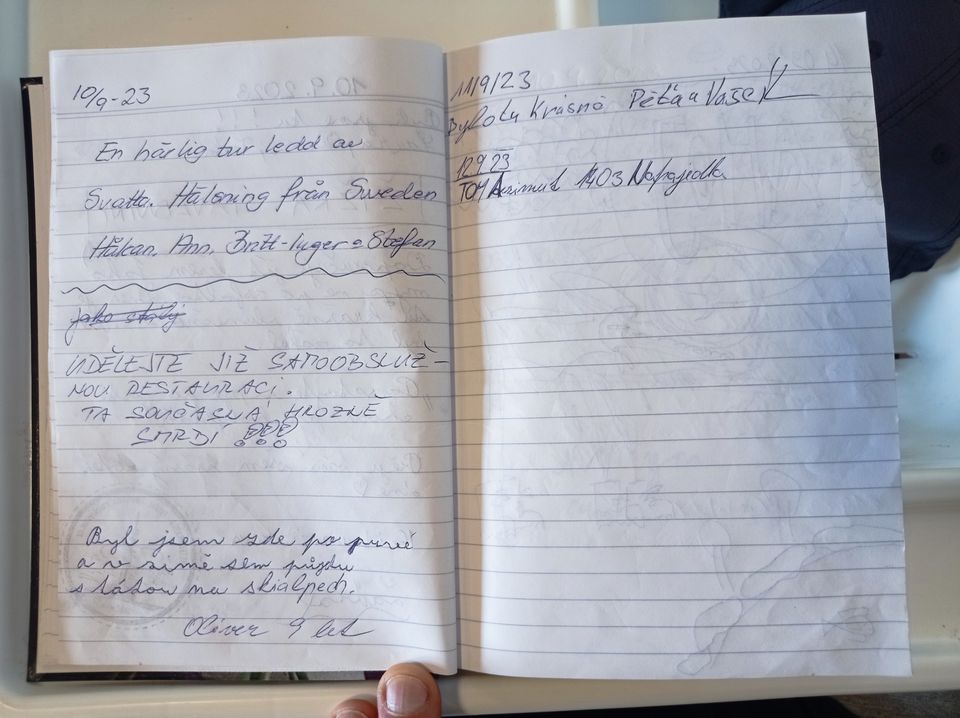 10/9-23
En härlig tur ledd av
Svatta. Hälsning från Sweden
Håkan, Ann, Britt-Inger o Stefan
jako stálý
UDĚLEJTE JIŽ SAMOOBSLUŽ-
NOU RESTAURACI.
TA SOUČASNÁ HROZNĚ
SMRDÍ !!!
Byl jsem zde po prvé
a v zimě sem půjdu
s tátou na skialpech.
Oliver 9 let
11/9/23
Bylo tu krásně Péťa a Vašek
12 9 23
TOM Azimut 1403 Napajedla